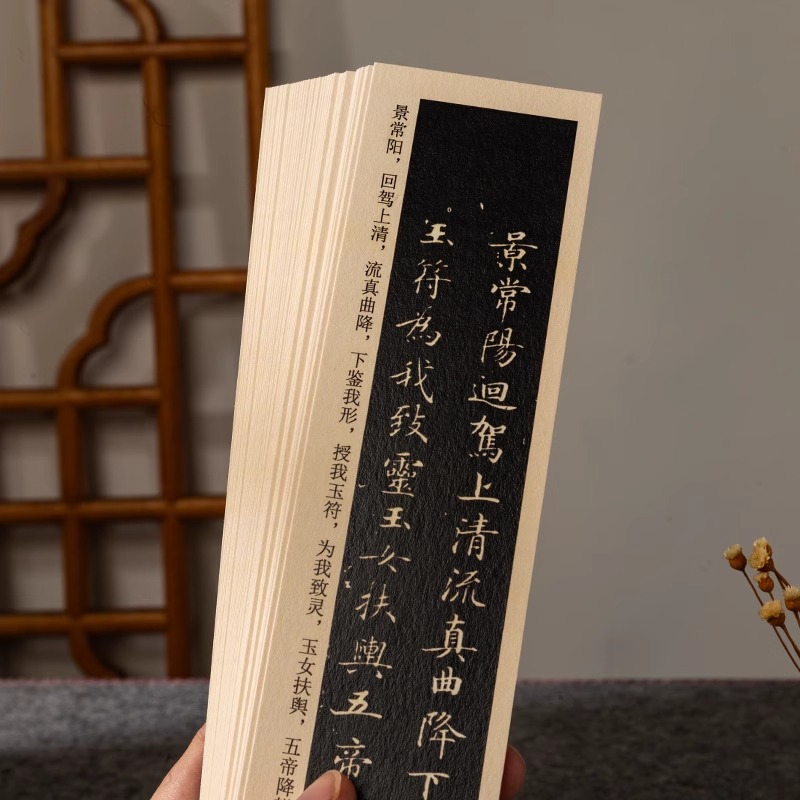 景常陽迴駕上清流真曲降下
玉符為我致靈玉女扶輿五帝
景常阳，回驾上清，流真曲降，下鉴我形，授我玉符，为我致灵，玉女扶舆，五帝降